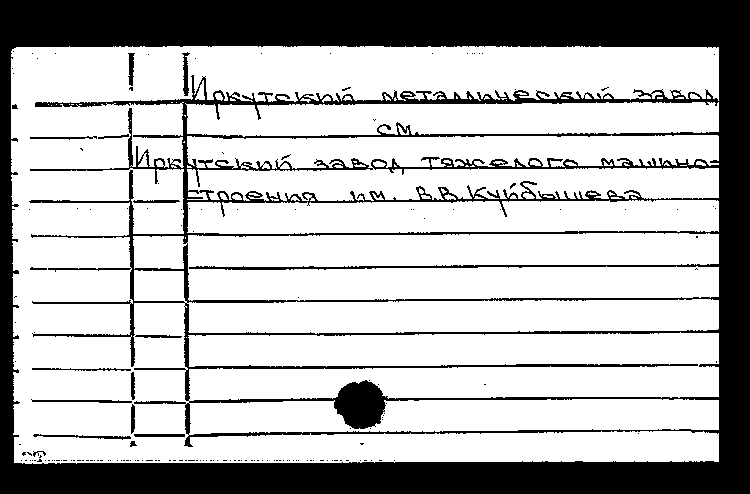 Иркутский металлический завод
см.
Иркутский завод тяжелого машино=
строения им. В.В.Куйбышева